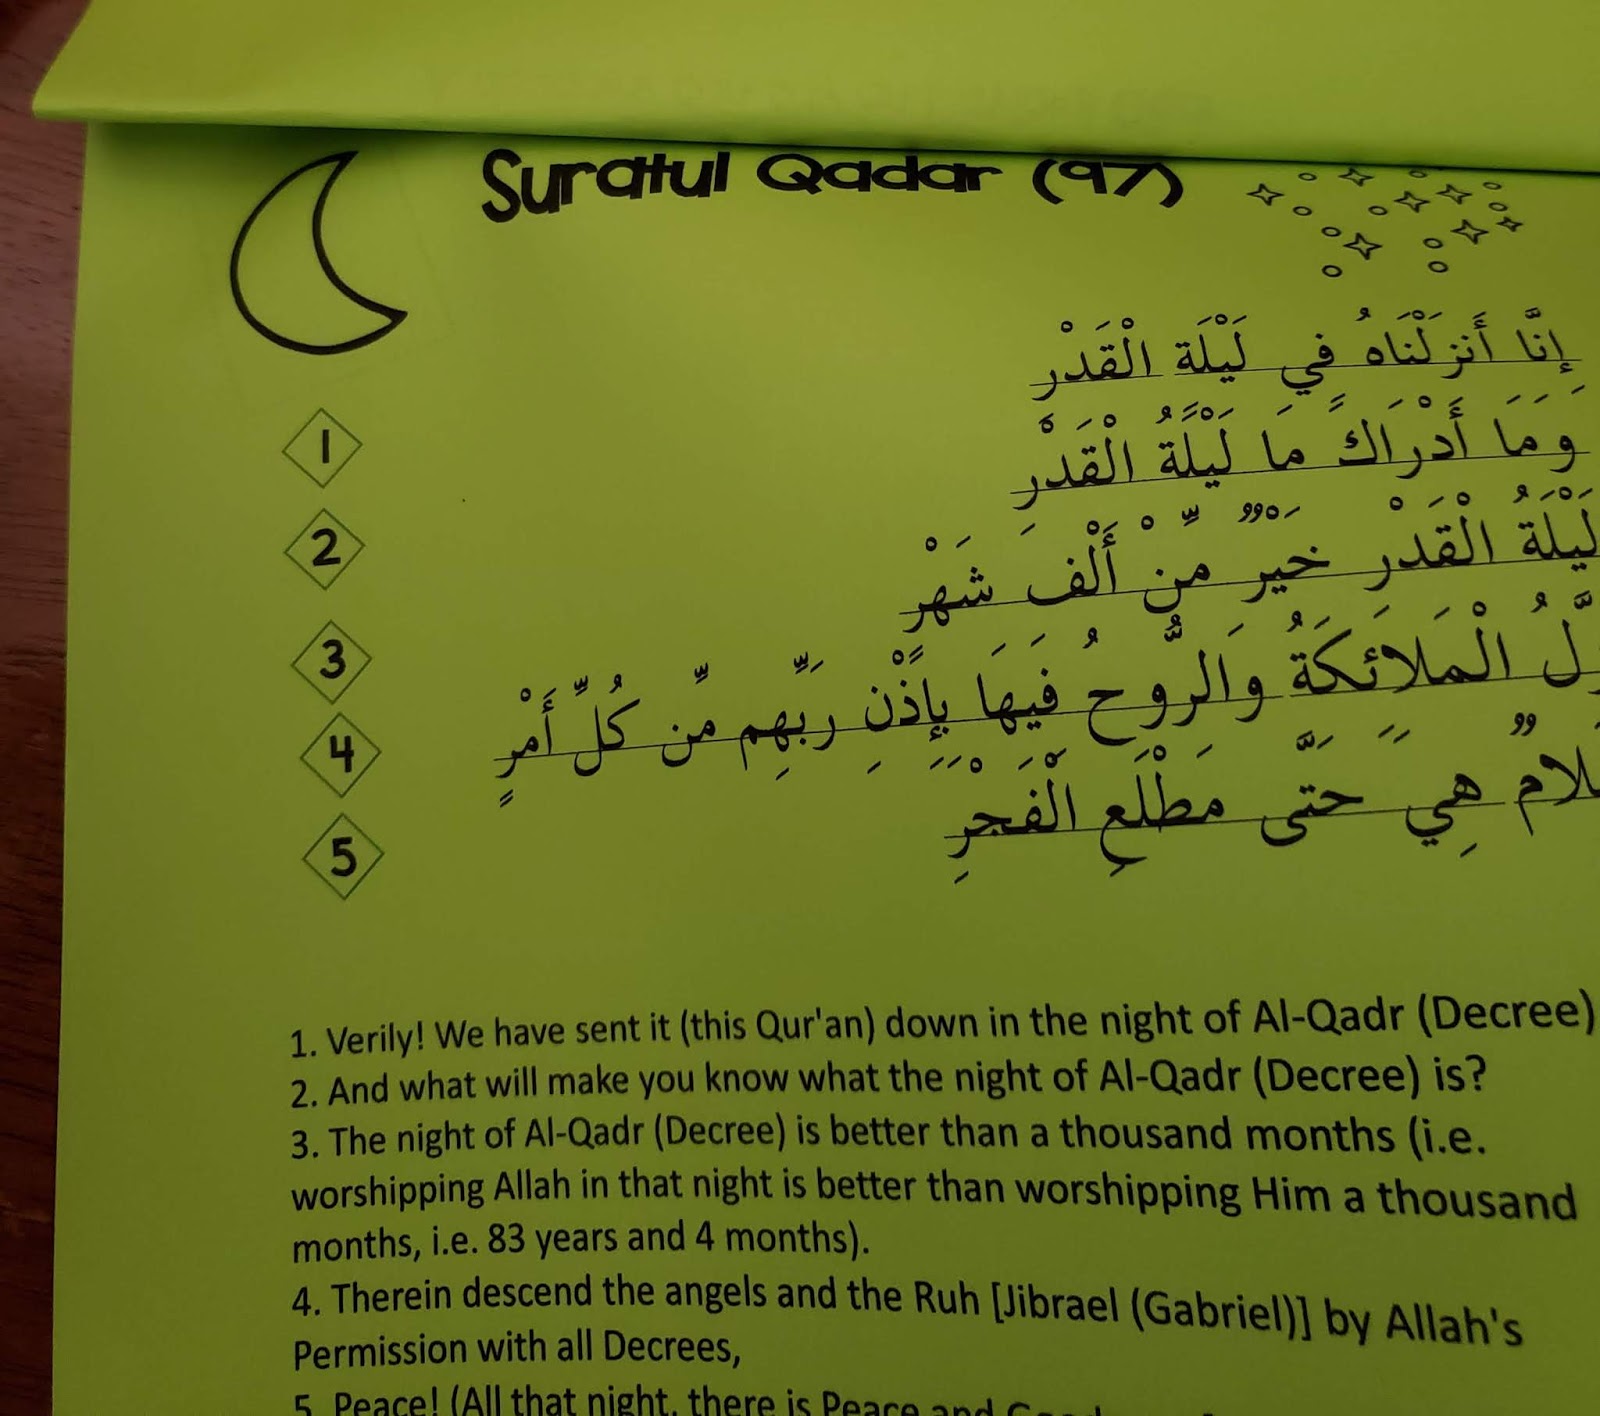 Suratul Qadar (97)
إِنَّا أَنزَلْنَاهُ فِي لَيْلَةِ الْقَدْرِ
1
وَمَا أَدْرَاكَ مَا لَيْلَةُ الْقَدْرِ
2
لَيْلَةُ الْقَدْرِ خَيْرٌ مِّنْ أَلْفِ شَهْرٍ
3
الْمَلَائِكَةُ وَالرُّوحُ فِيهَا بِإِذْنِ رَبِّهِم مِّن كُلِّ أَمْرٍ
4
هِيَ حَتَّى مَطْلَعِ الْفَجْرِ
5
1. Verily! We have sent it (this Qur'an) down in the night of Al-Qadr (Decree)
2. And what will make you know what the night of Al-Qadr (Decree) is?
3. The night of Al-Qadr (Decree) is better than a thousand months (i.e.
worshipping Allah in that night is better than worshipping Him a thousand
months, i.e. 83 years and 4 months).
4. Therein descend the angels and the Ruh [Jibrael (Gabriel)] by Allah's
Permission with all Decrees,
5. Peace! (All that night, there is Peace and